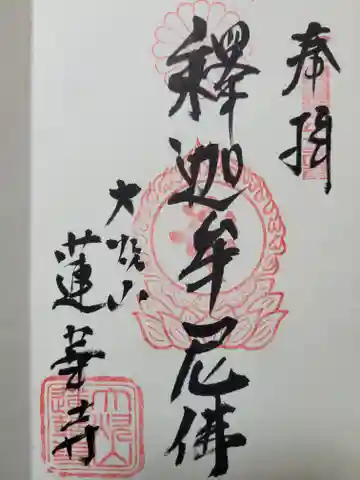 奉拝
釋迦牟尼佛
大悦山
蓮華寺